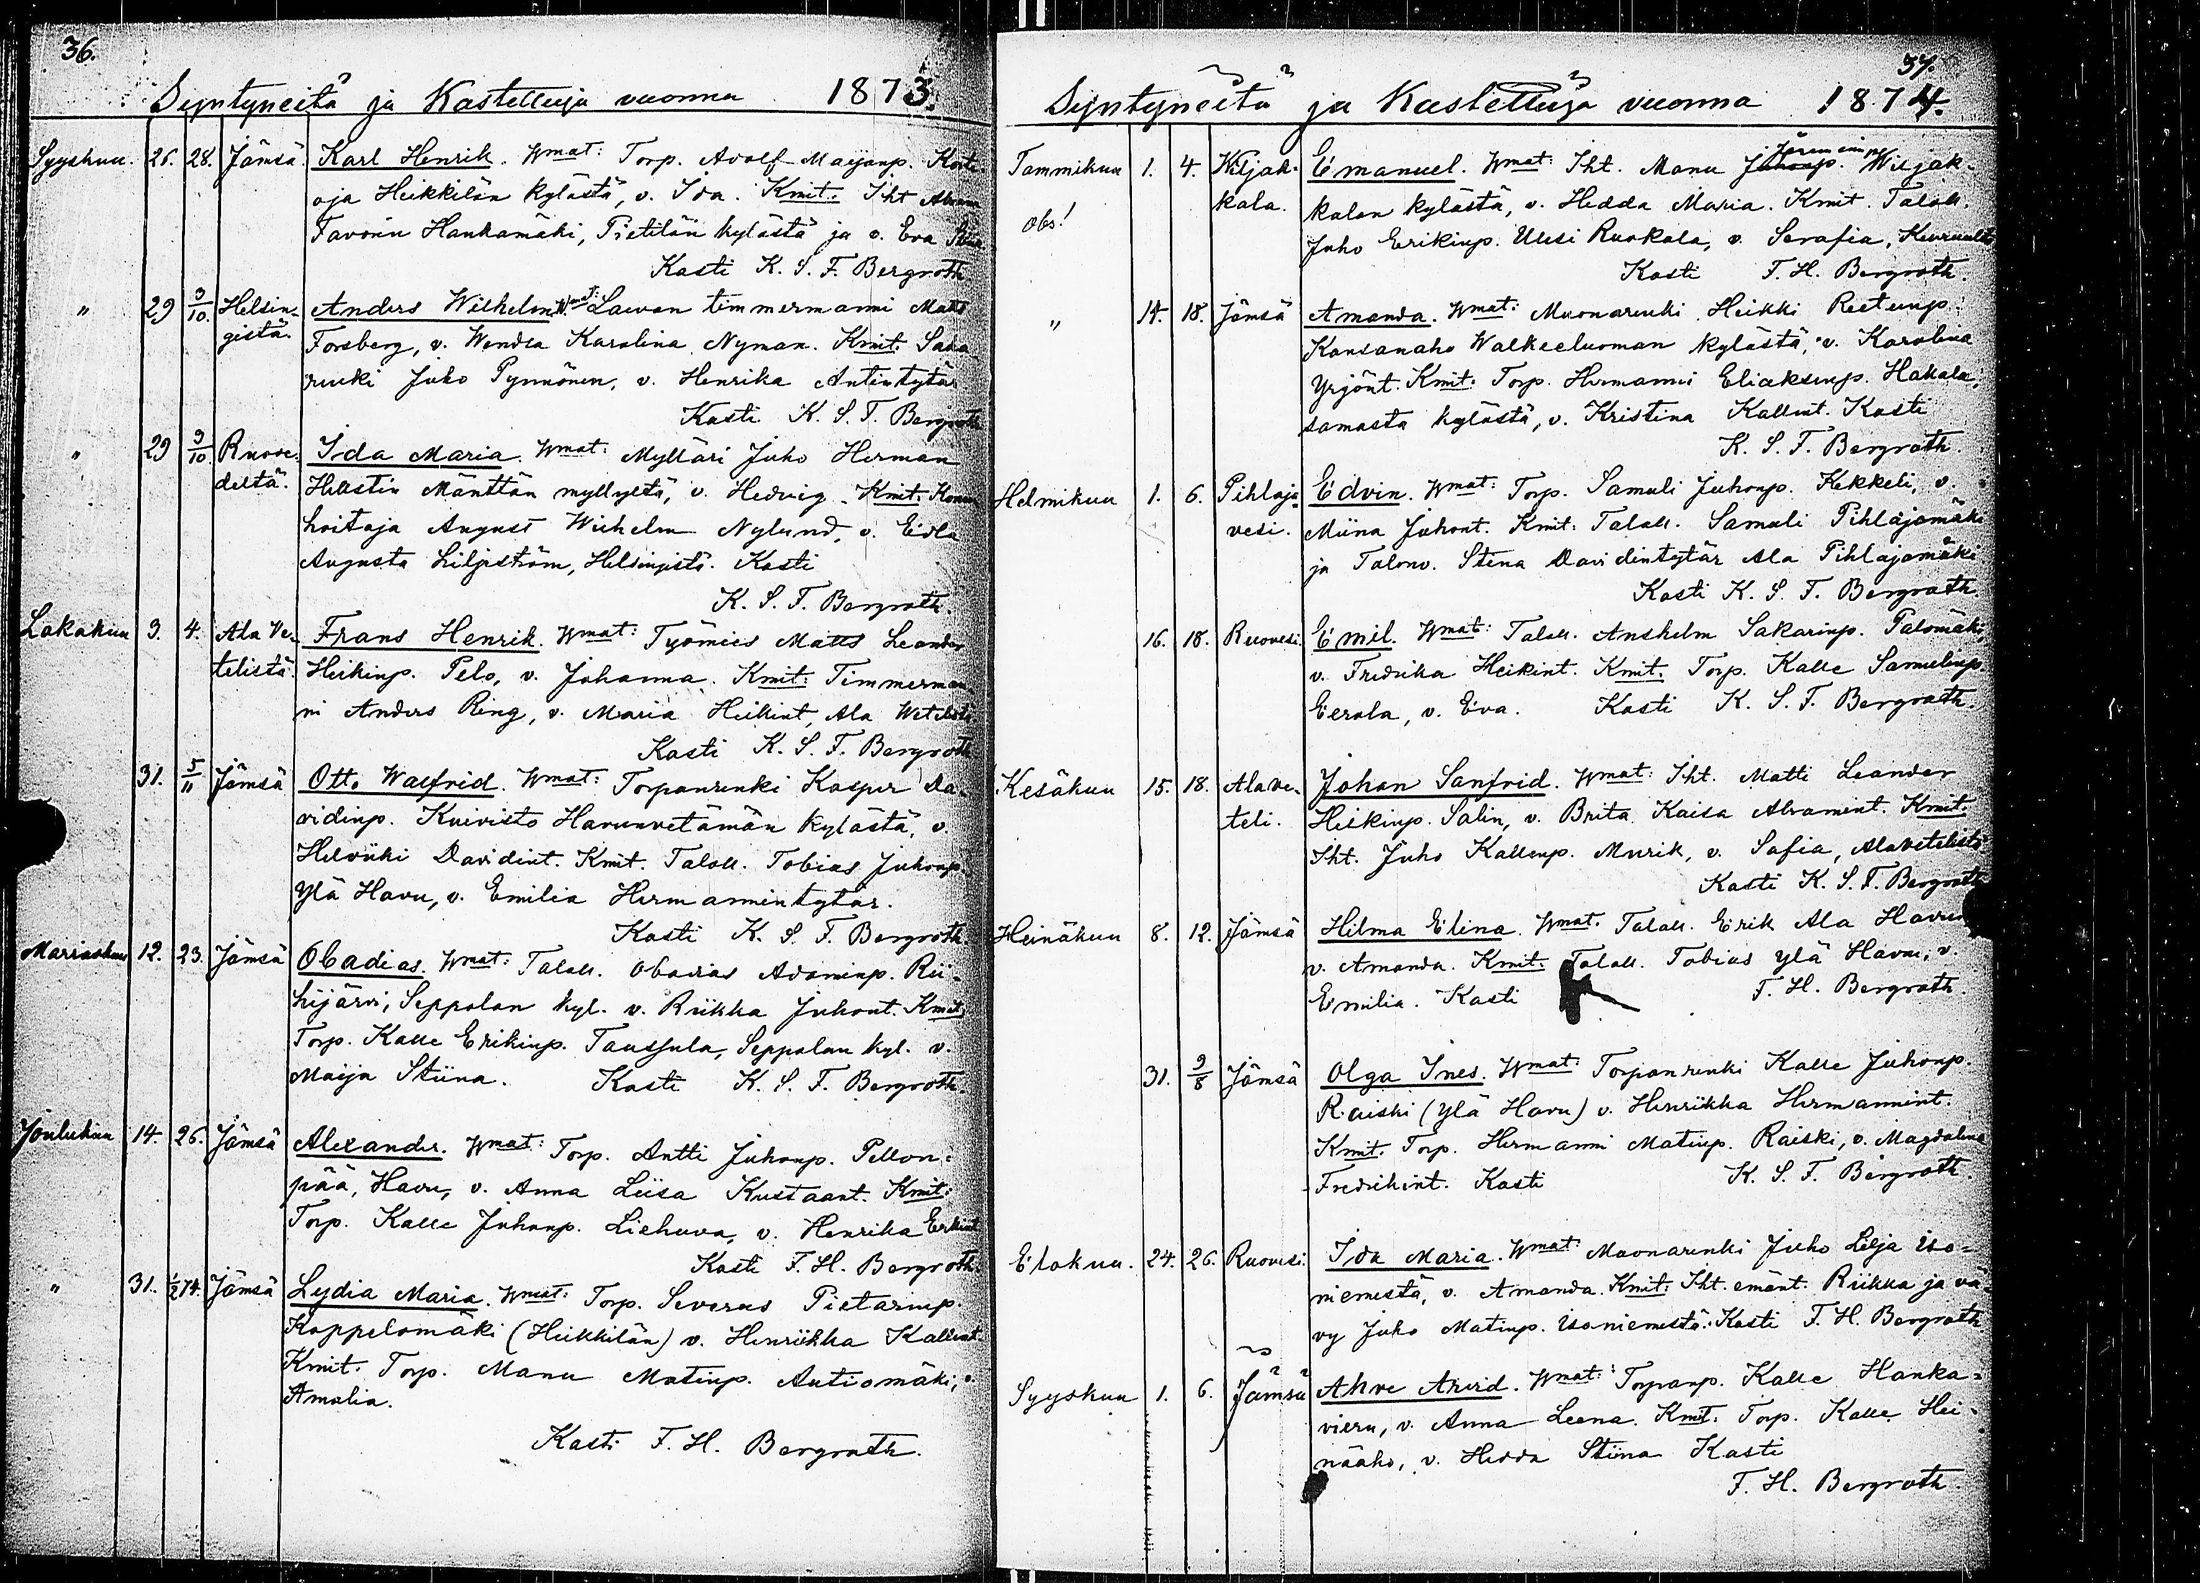 36.
Syntyneitä ja Kastettuja vuonna 1873.
Syyskuu. 26. 28. Jämsä. Karl Henrik. Wmat: Torp. Adolf Maijanp.
oja Heikkilän kylästä, v. Ida. Kmit. Iht
Favorin Hankamäki, Pietilän kylästä ja v. Eva
Kasti K. S. F. Bergroth
" 29 3/10. Helsin- Anders Wilhelm. Wmat: Laivan timmermanni Matts
gistä. Forsberg, v. Wendla Karolina Nyman. Kmit.
renki Juho Pynnönen, v. Henrika Antintytär
Kasti K. S. F. Bergroth
" 29 3/10. Ruove- Ida Maria. Wmat: Mylläri Juho Herman
deltä. Hellstin Mänttän myllystä, v. Hedvig. Kmit.
hoitaja August Wilhelm Nylund, v. Edla
Augusta Liljeström, Helsingistä. Kasti
K. S. F. Bergroth.
Lokakuu 3. 4. Ala Ve- Frans Henrik. Wmat: Työmies Matts Leander
telistä. Heikinp. Pelo, v. Johanna. Kmit: Timmerman-
ni Anders Ring, v. Maria Heikint, Ala Wetelistä
Kasti K. S. F. Bergroth
31. 5/11 Jämsä Otto Walfrid. Wmat: Torpanrenki Kasper Da-
vidinp. Kuivisto Havunvetämän kylästä, v.
Helviiki Davidint. Kmit. Taloll. Tobias Juhonp.
Ylä Havu, v. Emilia Hermannintytär.
Kasti K. S. F. Bergroth.
Marraskuu 12. 23. Jämsä Obadias. Wmat: Taloll. Obadias Adaminp. Rii-
hijärvi, Seppolan kyl. v. Riikka Juhont. Kmit.
Torp. Kalle Erikinp. Taussula, Seppolan kyl. v.
Maija Stiina. Kasti K. S. F. Bergroth.
Joulukuu 14. 26. Jämsä Alexander. Wmat: Torp. Antti Juhonp. Pellon-
pää, Havu, v. Anna Liisa Kustaant. Kmit:
Torp. Kalle Juhanp. Liehuva, v. Henrika Erkint
Kasti F. H. Bergroth.
" 31. 1/2 74. Jämsä Lydia Maria. Wmat: Torp. Severus Pietarinp.
Koppelomäki (Heikkilän) v. Henriikka Kallent.
Kmit. Torp. Manu Matinp. Autiomäki, v.
Amalia.
Kasti F. H. Bergroth.
37.
Syntyneitä ja Kastettuja vuonna 1874.
Tammikuu 1. 4. Wiljak- Emanuel. Wmat: Iht. Manu Wiljak-
Obs! kala. kalan kylästä, v. Hedda Maria. Kmit. Taloll.
Juho Erikinp. Uusi Ruokala, v. Serafia,
Kasti F. H. Bergroth.
" 14. 18. Jämsä Amanda. Wmat: Muonarenki Heikki Reetunp.
Kansanaho Walkeeluoman kylästä, v. Karolina
Yrjönt. Kmit. Torp. Hermanni Eliaksenp. Hakala,
samasta kylästä, v. Kristina Kallent. Kasti
K. S. F. Bergroth.
Helmikuu 1. 6. Pihlaja- Edvin. Wmat: Torp. Samuli Juhonp. Kekkeli, v.
vesi. Miina Juhont. Kmit: Taloll. Samuli Pihlajamäki
ja Talonv. Stena Davidintytär Ala Pihlajamäki
Kasti K. S. F. Bergroth.
16. 18. Ruovesi. Emil. Wmat: Taloll. Anshelm Sakarinp. Palomäki,
v. Fredrika Heikint. Kmit. Torp. Kalle Samulinp
Eerola, v. Eva. Kasti K. S. F. Bergroth.
Kesäkuu 15. 18. Alave- Johan Sanfrid. Wmat: Iht. Matti Leander
teli. Heikinp. Salin, v. Brita Kaisa Abramint. Kmit.
Iht. Juho Kallenp. Murik, v. Safia, Alavetelistä
Kasti K. S. F. Bergroth
Heinäkuu 8. 12. Jämsä Hilma Elina. Wmat. Taloll. Erik Ala Havu
v. Amanda. Kmit. Taloll. Tobias Ylä Havu, v.
Emilia. Kasti F. H. Bergroth.
31. 9/8 Jämsä Olga Ines. Wmat: Torpanrenki Kalle Juhonp.
Raiski (Ylä Havu) v. Henriikka Hermannint.
Kmit. Torp. Hermanni Matinp. Raiski, v. Magdalina
Fredrikint. Kasti K. S. F. Bergroth.
Elokuu. 24. 26. Ruovesi. Ida Maria. Wmat: Muonarenki Juho Lilja Iso-
niemestä, v. Amanda. Kmit: Iht. emänt. Riikka ja vä-
vy Juho Matinp. Isoniemestä. Kasti F. H. Bergroth
Syyskuu 1. 6. Jämsä Ahve Arvid. Wmat: Torpanp. Kalle Hanka-
vieru, v. Anna Leena. Kmit. Torp. Kalle Hei-
nääho, v. Hedda Stiina Kasti
F. H. Bergroth.